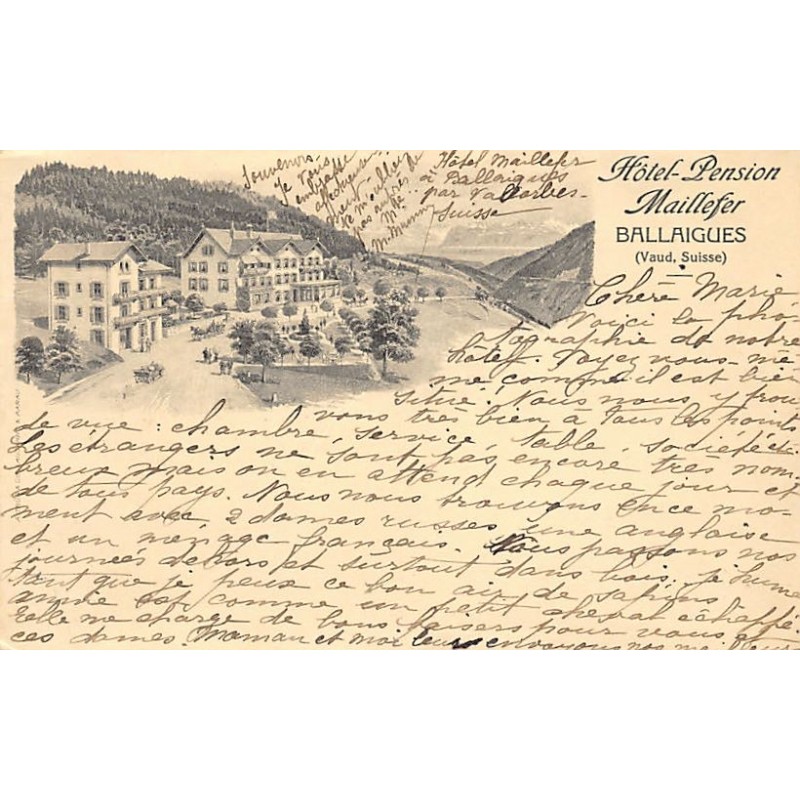 Hôtel-Pension
Maillefer
BALLAIGUES
(Vaud, Suisse)
Hôtel Maillefer
à Ballaigues
par Vallorbes
Suisse
Chère Marie
Voici la pho-
tographie de notre
hôtel. Voyez vous-mê-
me comme il est bien
situé! Nous nous y trou
vons très bien à tous les points
de vue: chambre, service, table, société etc.
Les étrangers ne sont pas encore très nom-
breux mais on en attend chaque jour et
de tous pays. Nous nous trouvons en ce mo-
ment avec 2 dames russes, une anglaise
et un ménage français. Nous passons nos
journées dehors et surtout dans bois. Je hume
tant que je peux ce bon air de sapins
année est comme un petit cheval échappé.
Elle me charge de bons baisers pour vous et
ces dames. Maman et moi leurs envoyons nos meilleurs
Souvenirs.
Je vous
embrasse
affectueuse-
ment